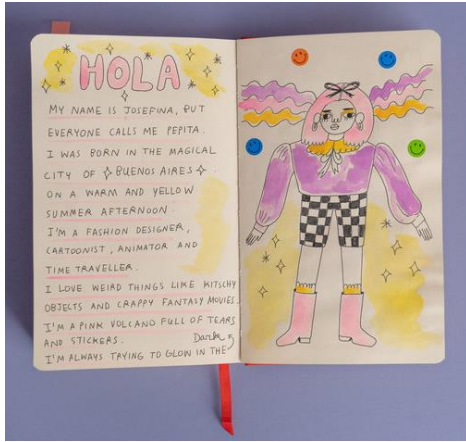 HOLA
MY NAME IS JOSEFINA, BUT
EVERYONE CALLS ME PEPITA.
I WAS BORN IN THE MAGICAL
CITY OF BUENOS AIRES
ON A WARM AND YELLOW
SUMMER AFTERNOON.
I'M A FASHION DESIGNER,
CARTOONIST, ANIMATOR AND
TIME TRAVELLER.
I LOVE WEIRD THINGS LIKE KITSCHY
OBJECTS AND CRAPPY FANTASY MOVIES.
I'M A PINK VOLCANO FULL OF TEARS
AND STICKERS.
I'M ALWAYS TRYING TO GLOW IN THE
Dark